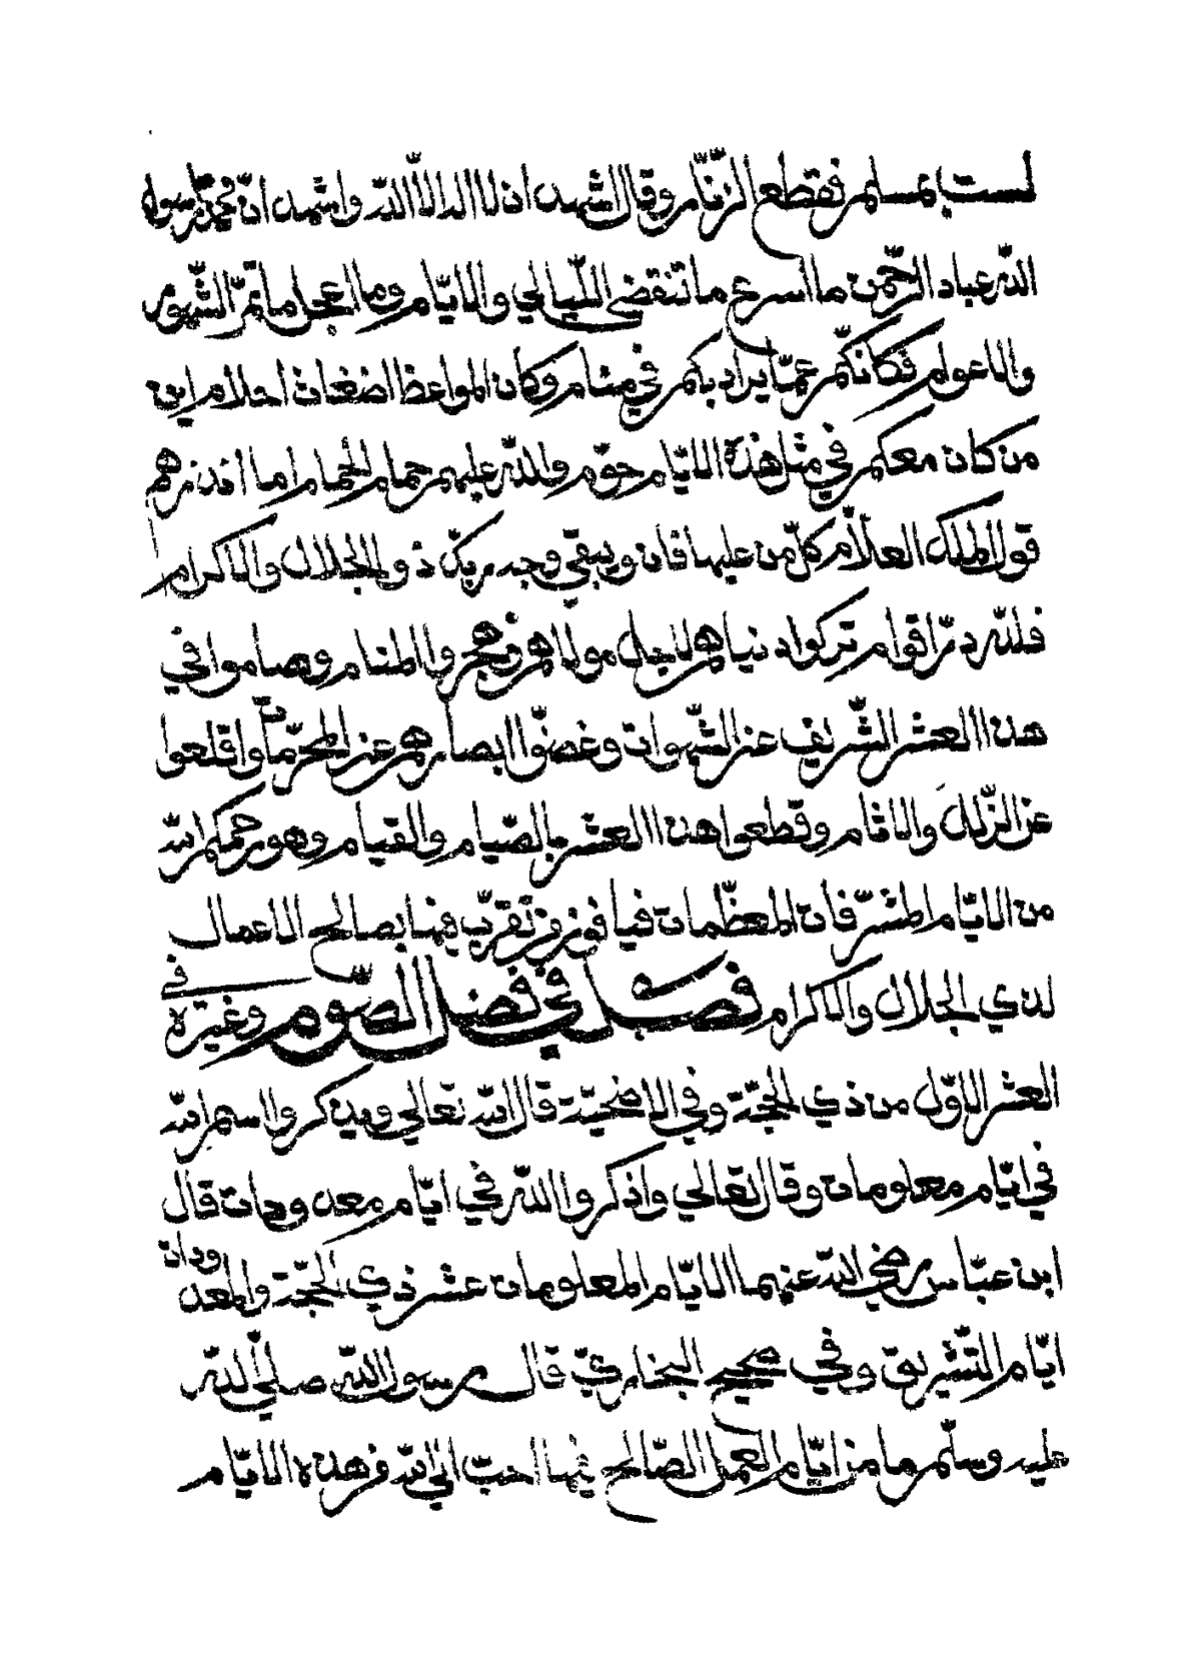 لست بمسلم فقطع الزنّار وقال اشهد ان لا اله الّا اللّه واشهد انّ محمّدا رسول
اللّه عباد الرّحمن ما اسرع ما تنقضي اللّيالي والايّام وما اعجل ما تمرّ الشّهور
والاعوام فكانّكم عمّا يراد بكم في منام وكان المواعظ اضغاث احلام اين
من كان معكم في مثل هذه الايّام حوّم واللّه عليهم حمام الحمام اما انذرهم
قول الملك العلّام كلّ من عليها فان ويبقى وجه ربّك ذو الجلال والاكرام
فللّه درّ اقوام تركوا دنياهم لاجل مولاهم وهجروا المنام وصاموا في
هذا العشر الشّريف عن الشّهوات وغضّوا ابصارهم عن المحرّمات واقلعوا
عن الزّلل والاثام وقطعوا هذا العشر بالصّيام والقيام وهو رحمكم اللّه
من الايّام المشرّفات المعظّمات فيا فوز من تقرّب فيها بصالح الاعمال
لذي الجلال والاكرام فصل في فضل الصّوم وغيره في
العشر الاوّل من ذي الحجّة وفي الاضحيّة قال اللّه تعالي ويذكروا اسم اللّه
في ايّام معلومات وقال تعالي واذكروا اللّه في ايّام معدودات قال
ابن عبّاس رضي اللّه عنهما الايّام المعلومات عشر ذي الحجّة والمعدودات
ايّام التّشريق وفي صحيح البخاريّ قال رسول اللّه صلّي اللّه
عليه وسلّم ما من ايّام العمل الصّالح فيها احبّ الي اللّه من هذه الايّام